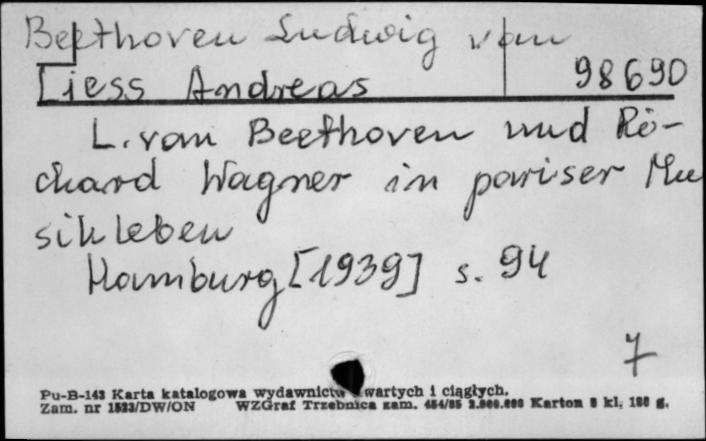 Beethoven Ludwig van
Liess Andreas 98690
L. van Beethoven und Ri-
chard Wagner in pariser Mu
sikleben
Hamburg [1939] s. 94
7
Pu-B-143 Karta katalogowa wydawnictw zwartych i ciągłych.
Zam. nr 1523/DW/ON WZGraf Trzebnica zam. 454/85 2.000.000 Karton 8 kl. 180 g.